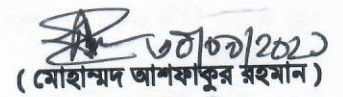 ৩০/০৩/২০২১
( মোহাম্মদ আশফাকুর রহমান )